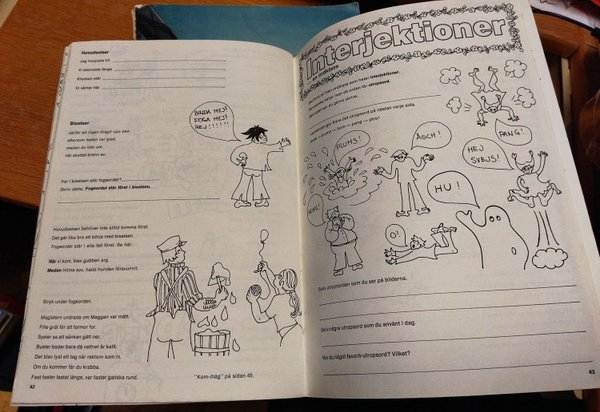 Huvudsatser
Jag hoppade till
Vi stannade länge
Klockan slår
Vi väntar här
Bisatser
därför att ingen dragit upp den.
eftersom festen var glad.
medan du klär om.
när skottet brann av.
BINDA MEJ!
FOGA MEJ?
NEJ!!!!!!
Var i bisatsen står fogeordet?
Skriv detta: Fogeordet står först i bisatsen.
Huvudsatsen behöver inte alltid komma först.
Det går lika bra att börja med bisatsen.
Fogeordet står i alla fall först. Se här:
När vi kom, blev gubben arg.
Medan Hilma sov, hade hunden försvunnit.
Stryk under fogeorden.
Magistern undrade om Maggan var mätt.
Fille gråt för att farmor for.
Syster ser att sånken gått ner.
Buster badar bara då vattnet är kallt.
Det blev tyst ett tag när rektorn kom in.
Om du kommer får du krabba.
Fast faster fastat länge, var faster ganska rund.
"Kom-ihåg" på sidan 45.
42
Interjektioner
som heter interjektioner.
för utropsord.
utropsord på nästan varje sida.
PLUMS!
ÄSCH!
PANG!
HEJ
SVEJS!
HU!
O!
utropsorden som du ser på bilderna.
Skriv några utropsord som du använt i dag.
Har du något favorit-utropsord? Vilket?
43